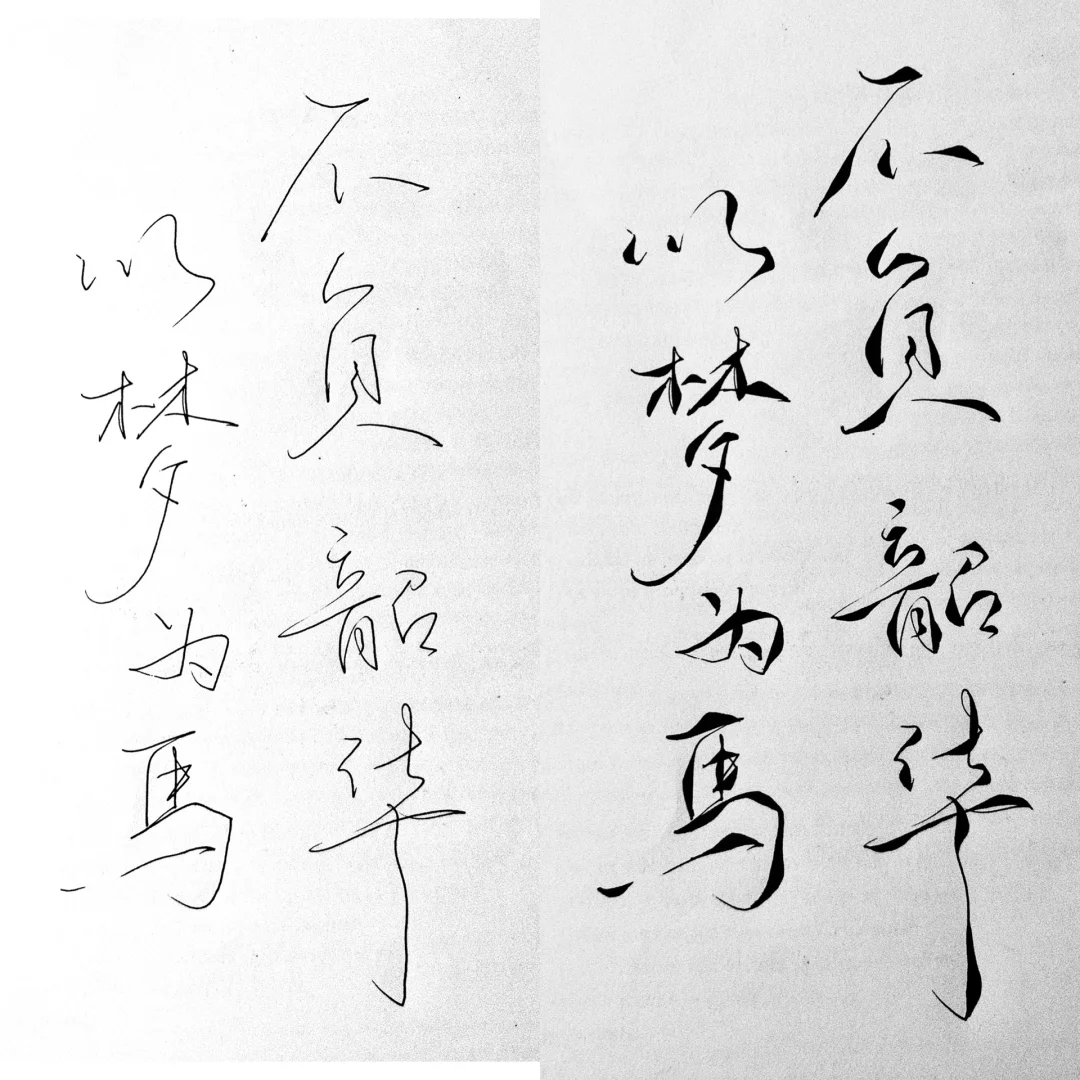 不負韶华
以梦为馬
不負韶华
以梦为馬